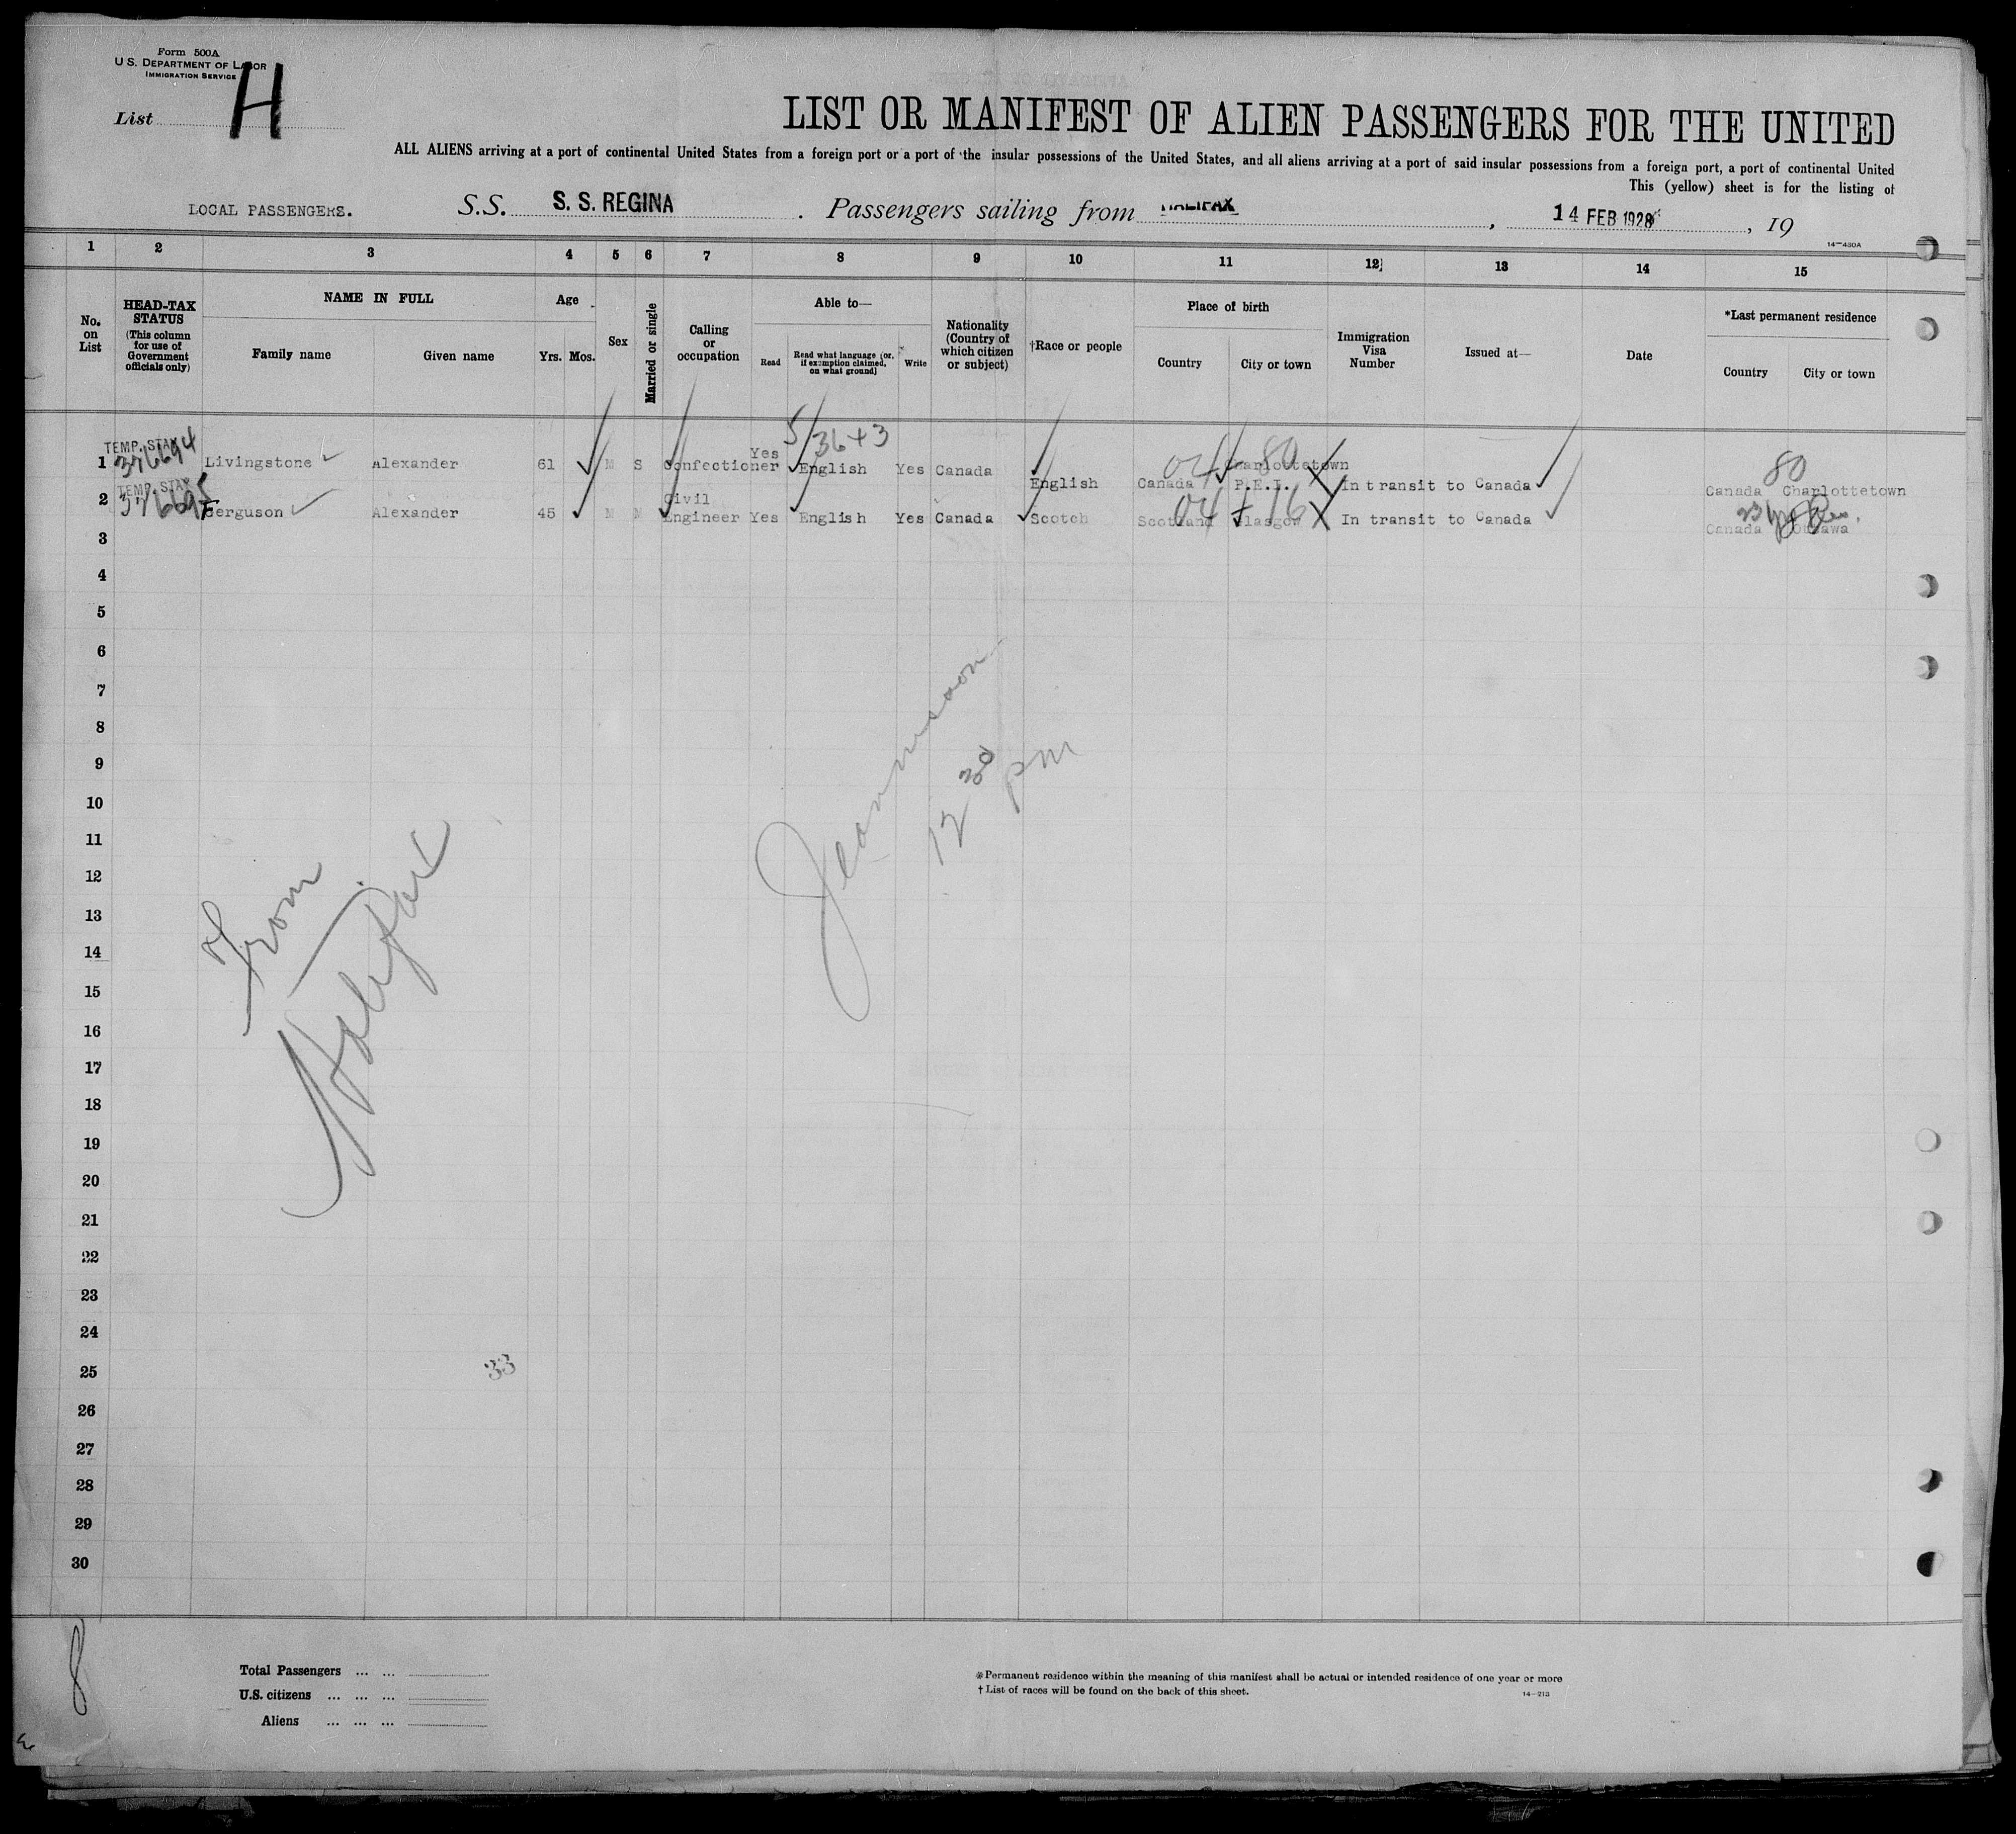 Form 500A
U.S. DEPARTMENT OF LABOR
IMMIGRATION SERVICE
List H
LIST OR MANIFEST OF ALIEN PASSENGERS FOR THE UNITED
ALL ALIENS arriving at a port of continental United States from a foreign port or a port of the insular possessions of the United States, and all aliens arriving at a port of said insular possessions from a foreign port, a port of continental United
This (yellow) sheet is for the listing of
LOCAL PASSENGERS. S.S. S. S. REGINA . Passengers sailing from HALIFAX , 14 FEB 1928 , 19
14-430A
1 2 3 4 5 6 7 8 9 10 11 12 13 14 15
No. on List
HEAD-TAX STATUS (This column for use of Government officials only)
NAME IN FULL
Family name Given name
Age
Yrs. Mos.
Sex
Married or single
Calling or occupation
Able to—
Read Read what language [or, if exemption claimed, on what ground] Write
Nationality (Country of which citizen or subject)
†Race or people
Place of birth
Country City or town
Immigration Visa Number
Issued at—
Date
*Last permanent residence
Country City or town
5/36+3
TEMP. STAY 376694
1 Livingstone Alexander 61 M S Confectioner Yes English Yes Canada English Canada Charlottetown P.E.I. In transit to Canada Canada Charlottetown
04 80 80
TEMP. STAY 376695
2 Ferguson Alexander 45 M M Civil Engineer Yes English Yes Canada Scotch Scotland Glasgow In transit to Canada Canada Ottawa
04 + 16 23
3
4
5
6
7
8
9
10
11
12
13
14
15
16
17
18
19
20
21
22
23
24
25
26
27
28
29
30
From Halifax
12 30 pm
33
8
Total Passengers ... ...
U.S. citizens ... ... ...
Aliens ... ... ...
* Permanent residence within the meaning of this manifest shall be actual or intended residence of one year or more
† List of races will be found on the back of this sheet.
14-213